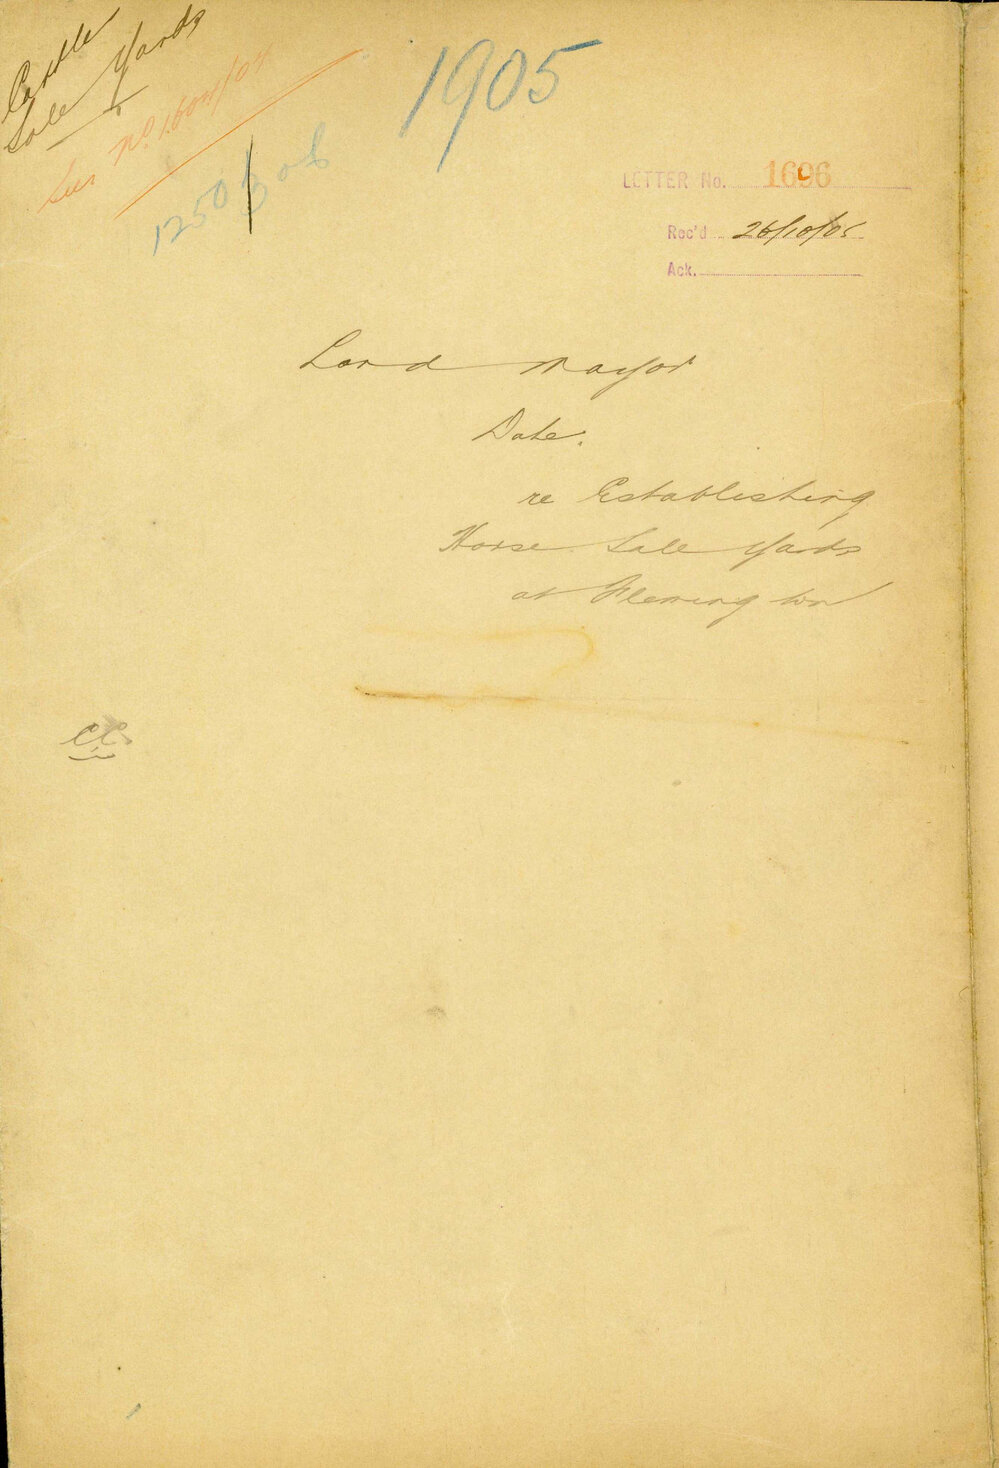 Cattle
Sale Yards
See No. 1604/05
1250/3
1905
LETTER No. 1696
Rec'd 26/10/05
Ack.
Lord Mayor
Date.
re Establishing
Horse Sale Yards
at Flemington
CC